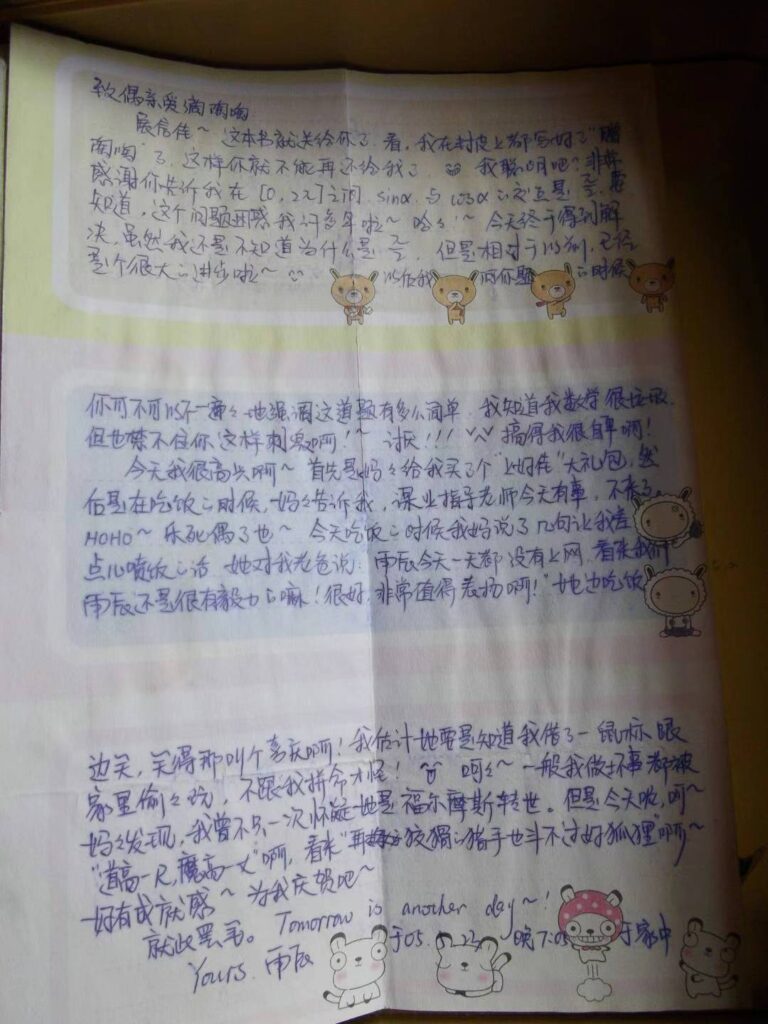 致偶亲爱滴陶陶
展信佳~ 这本书就送给你了.看,我在封皮上都写好了"赠
陶陶"了.这样你就不能再还给我了. 我聪明吧?非常
感谢你告诉我在 [0,2π]之间 sinα 与 cosα の交点是 要
知道,这个问题困惑我许多年啦~ 哈々~ 今天终于得到解
决,虽然我还是不知道当什么是 但是相对于以前,已经
是个很大の进步啦~ 以后我 问你题 の时候
你可不可以不要一遍々地强调这道题有多么简单.我知道我数学很垃圾.
但也禁不住你这样刺激啊!~ 讨厌!!! 搞得我很自卑啊!
今天我很高兴啊~ 首先是妈々给我买了个"上好佳"大礼包,然
后是在吃饭の时候,妈々告诉我,课业指导老师今天有事,不来了.
HOHO~ 乐死偶了也~ 今天吃饭の时候我妈说了几句让我差
点儿喷饭の话.她对我老爸说:雨辰今天一天都没有上网,看来我们
雨辰还是很有毅力の嘛!很好,非常值得表扬啊!"她边吃饭
边笑,笑得那叫个喜庆啊!我估计她要是知道我借了一鼠标跟
家里偷々玩,不跟我拼命才怪! 呵々~ 一般我做坏事都被
妈々发现,我曾不只一次怀疑她是福尔摩斯转世。但是今天呢,呵~
"道高一尺,魔高一丈"啊,看来"再狡猾の猎手也斗不过好狐狸"啊~
好有成就感~ 为我庆贺吧~
就此罢手。 Tomorrow is another day~!
Yours 雨辰 于05. 23 晚7:05 于家中